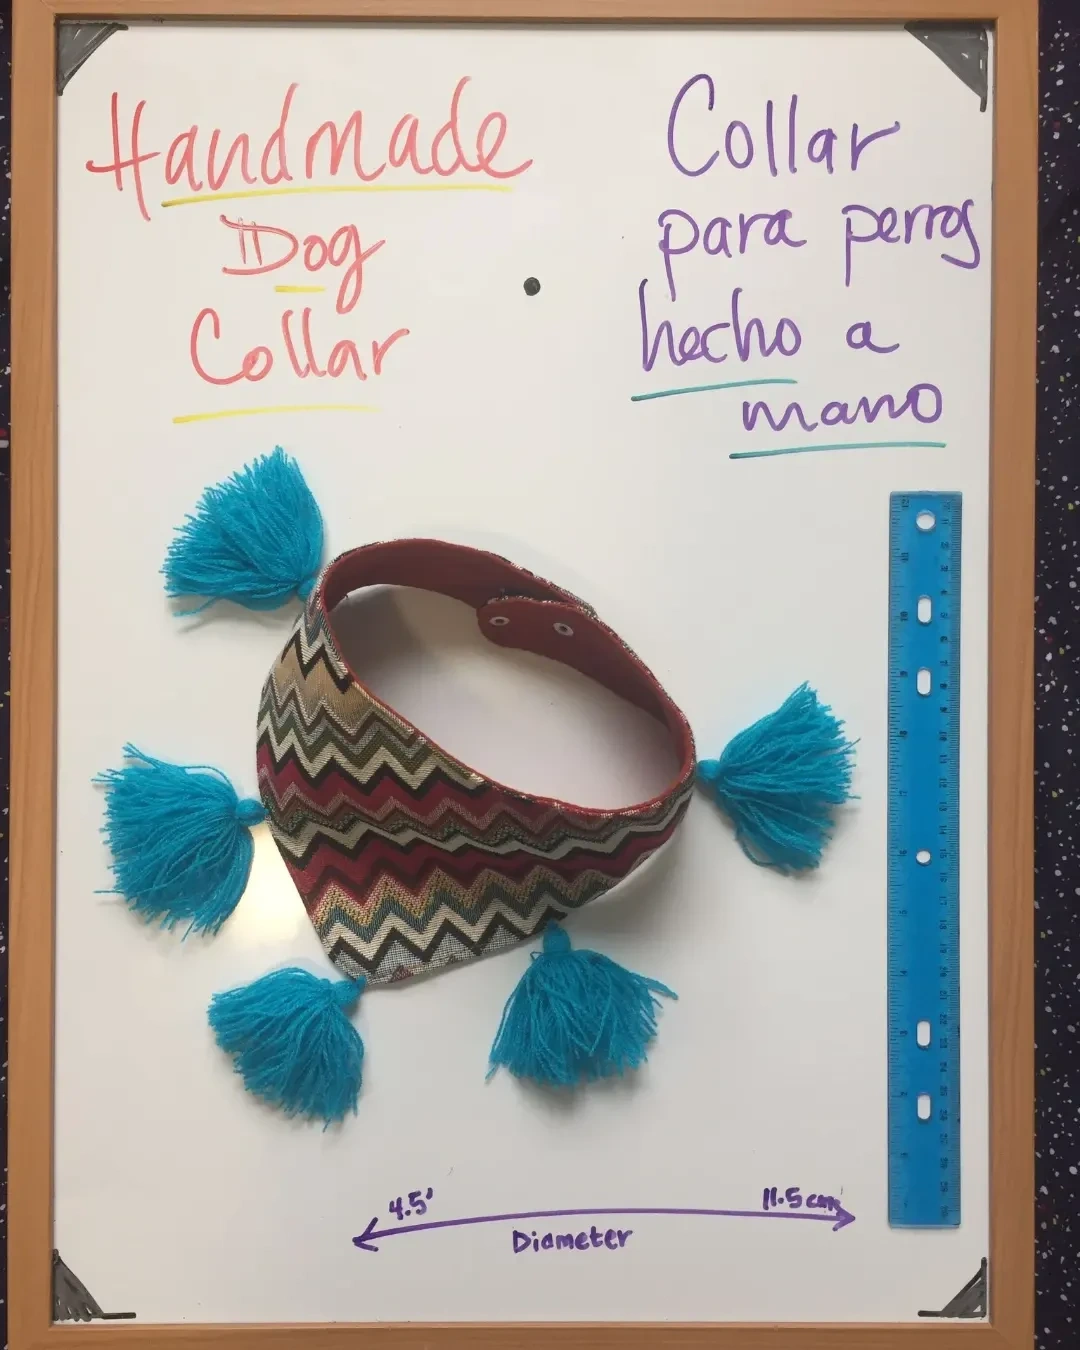 Handmade
Dog
Collar
Collar
para perros
hecho a
mano
4.5'
11.5cm
Diameter